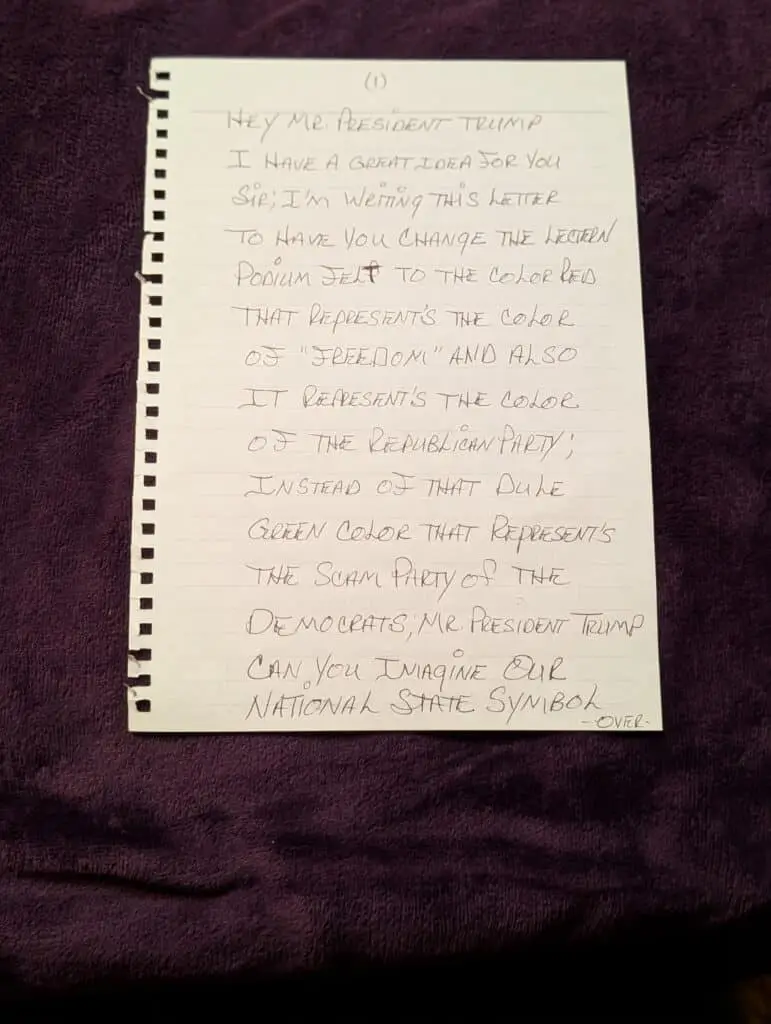 (1)
HEY MR. PRESIDENT TRUMP
I HAVE A GREAT IDEA FOR YOU
SIR; I'M WRITING THIS LETTER
TO HAVE YOU CHANGE THE LECTERN
PODIUM FELT TO THE COLOR RED
THAT REPRESENT'S THE COLOR
OF "FREEDOM" AND ALSO
IT REPRESENT'S THE COLOR
OF THE REPUBLICAN PARTY;
INSTEAD OF THAT DULE
GREEN COLOR THAT REPRESENT'S
THE SCAM PARTY OF THE
DEMOCRATS, MR. PRESIDENT TRUMP
CAN YOU IMAGINE OUR
NATIONAL STATE SYMBOL
-OVER-